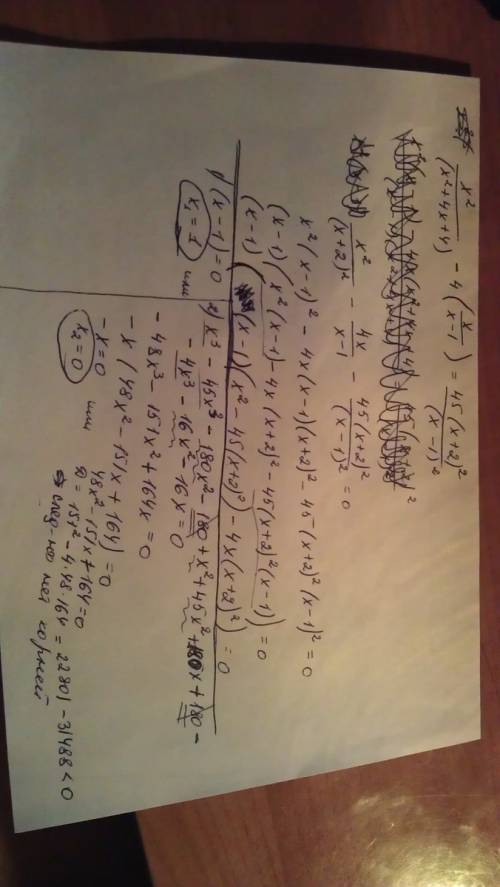 x²/(x²+4x+4) - 4(x/(x-1)) = 45(x+2)²/(x-1)²
x²/(x+2)² - 4x/(x-1) - 45(x+2)²/(x-1)² = 0
x²(x-1)² - 4x(x-1)(x+2)² - 45(x+2)²(x-1)² = 0
(x-1)(x²(x-1) - 4x(x+2)² - 45(x+2)²(x-1)) = 0
(x-1)((x-1)(x² - 45(x+2)²) - 4x(x+2)²) = 0
1) (x-1) = 0
x₁ = 1
или
2) x³ - 45x³ - 180x² - 180 + x² + 45x² + 180x + 180 -
- 4x³ - 16x² - 16x = 0
- 48x³ - 151x² + 164x = 0
- x(48x² - 151x + 164) = 0
- x = 0
x₂ = 0
или
48x² - 151x + 164 = 0
D = 151² - 4·48·164 = 22801 - 31488 < 0
след-но нет корней